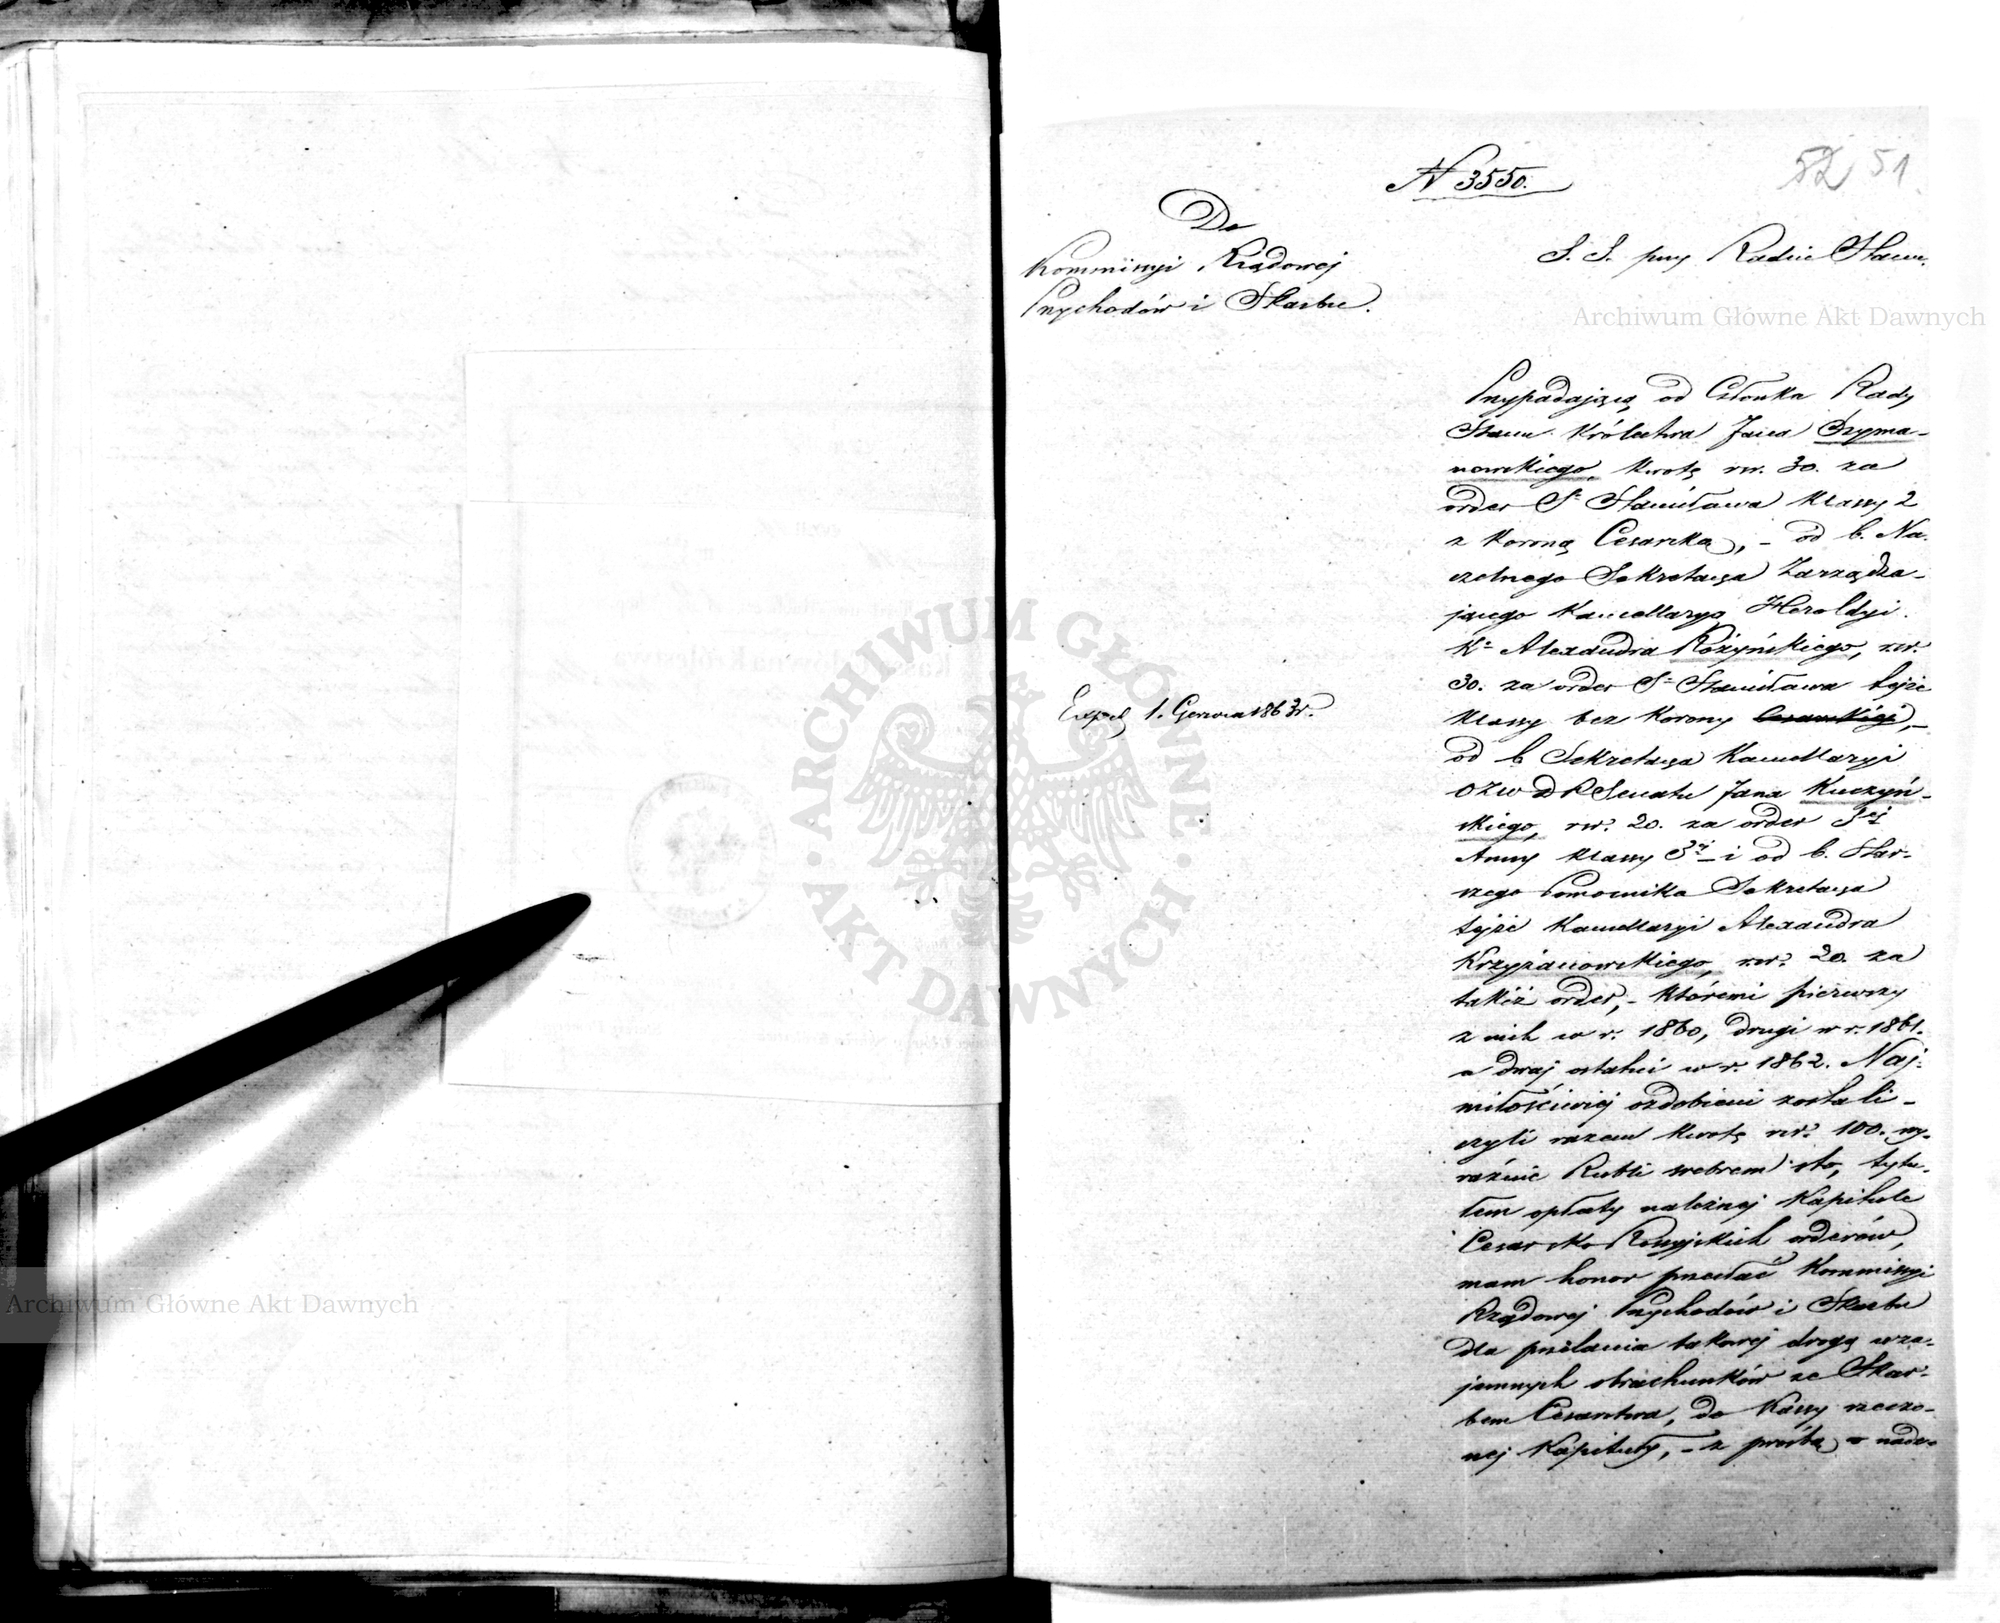 N 3550.
52 51
Do
Kommissyi Rządowej
Przychodów i Skarbu.
S. S. przy Radzie Stanu.
Archiwum Główne Akt Dawnych
Przypadającą od Członka Rady
Stanu Królestwa Jana Szyma-
nowskiego, kwotę rsr. 30. za
order Sgo Stanisława klassy 2
z koroną Cesarską, - od b. Na-
czelnego Sekretarza Zarządza-
jącego Kancellaryą Heroldyi
Alexandra Różyńskiego, rsr.
30. za order Sgo Stanisława tejże
klassy bez korony Cesarskiej, -
od b Sekretarza Kancellaryi
OZW DP Senatu Jana Kuczyń-
skiego, rsr. 20. za order Sej
Anny klassy 3ej i od b. Star-
szego Pomocnika Sekretarza
tejże Kancellaryi Alexandra
Krzyżanowskiego, rsr. 20. za
takiż order, - któremi pierwszy
z nich w r. 1860, drugi w r. 1861.
a dwaj ostatni w r. 1862. Naj-
miłościwiej ozdobieni zostali -
czyli razem kwotę rsr. 100. wy-
raźnie Rubli srebrem sto, tytu-
łem opłaty należnej Kapitule
Cesarsko Rossyjskich orderów,
mam honor przesłać Kommissyi
Rządowej Przychodów i Skarbu
dla przesłania takowej drogą wza-
jemnych obrachunków ze Skar-
bem Cesarstwa, do Kassy rzeczo-
nej Kapituły, - z prośbą o nade-
Exped 1. Czerwca 1863 r.
ARCHIWUM GŁÓWNE AKT DAWNYCH
Archiwum Główne Akt Dawnych